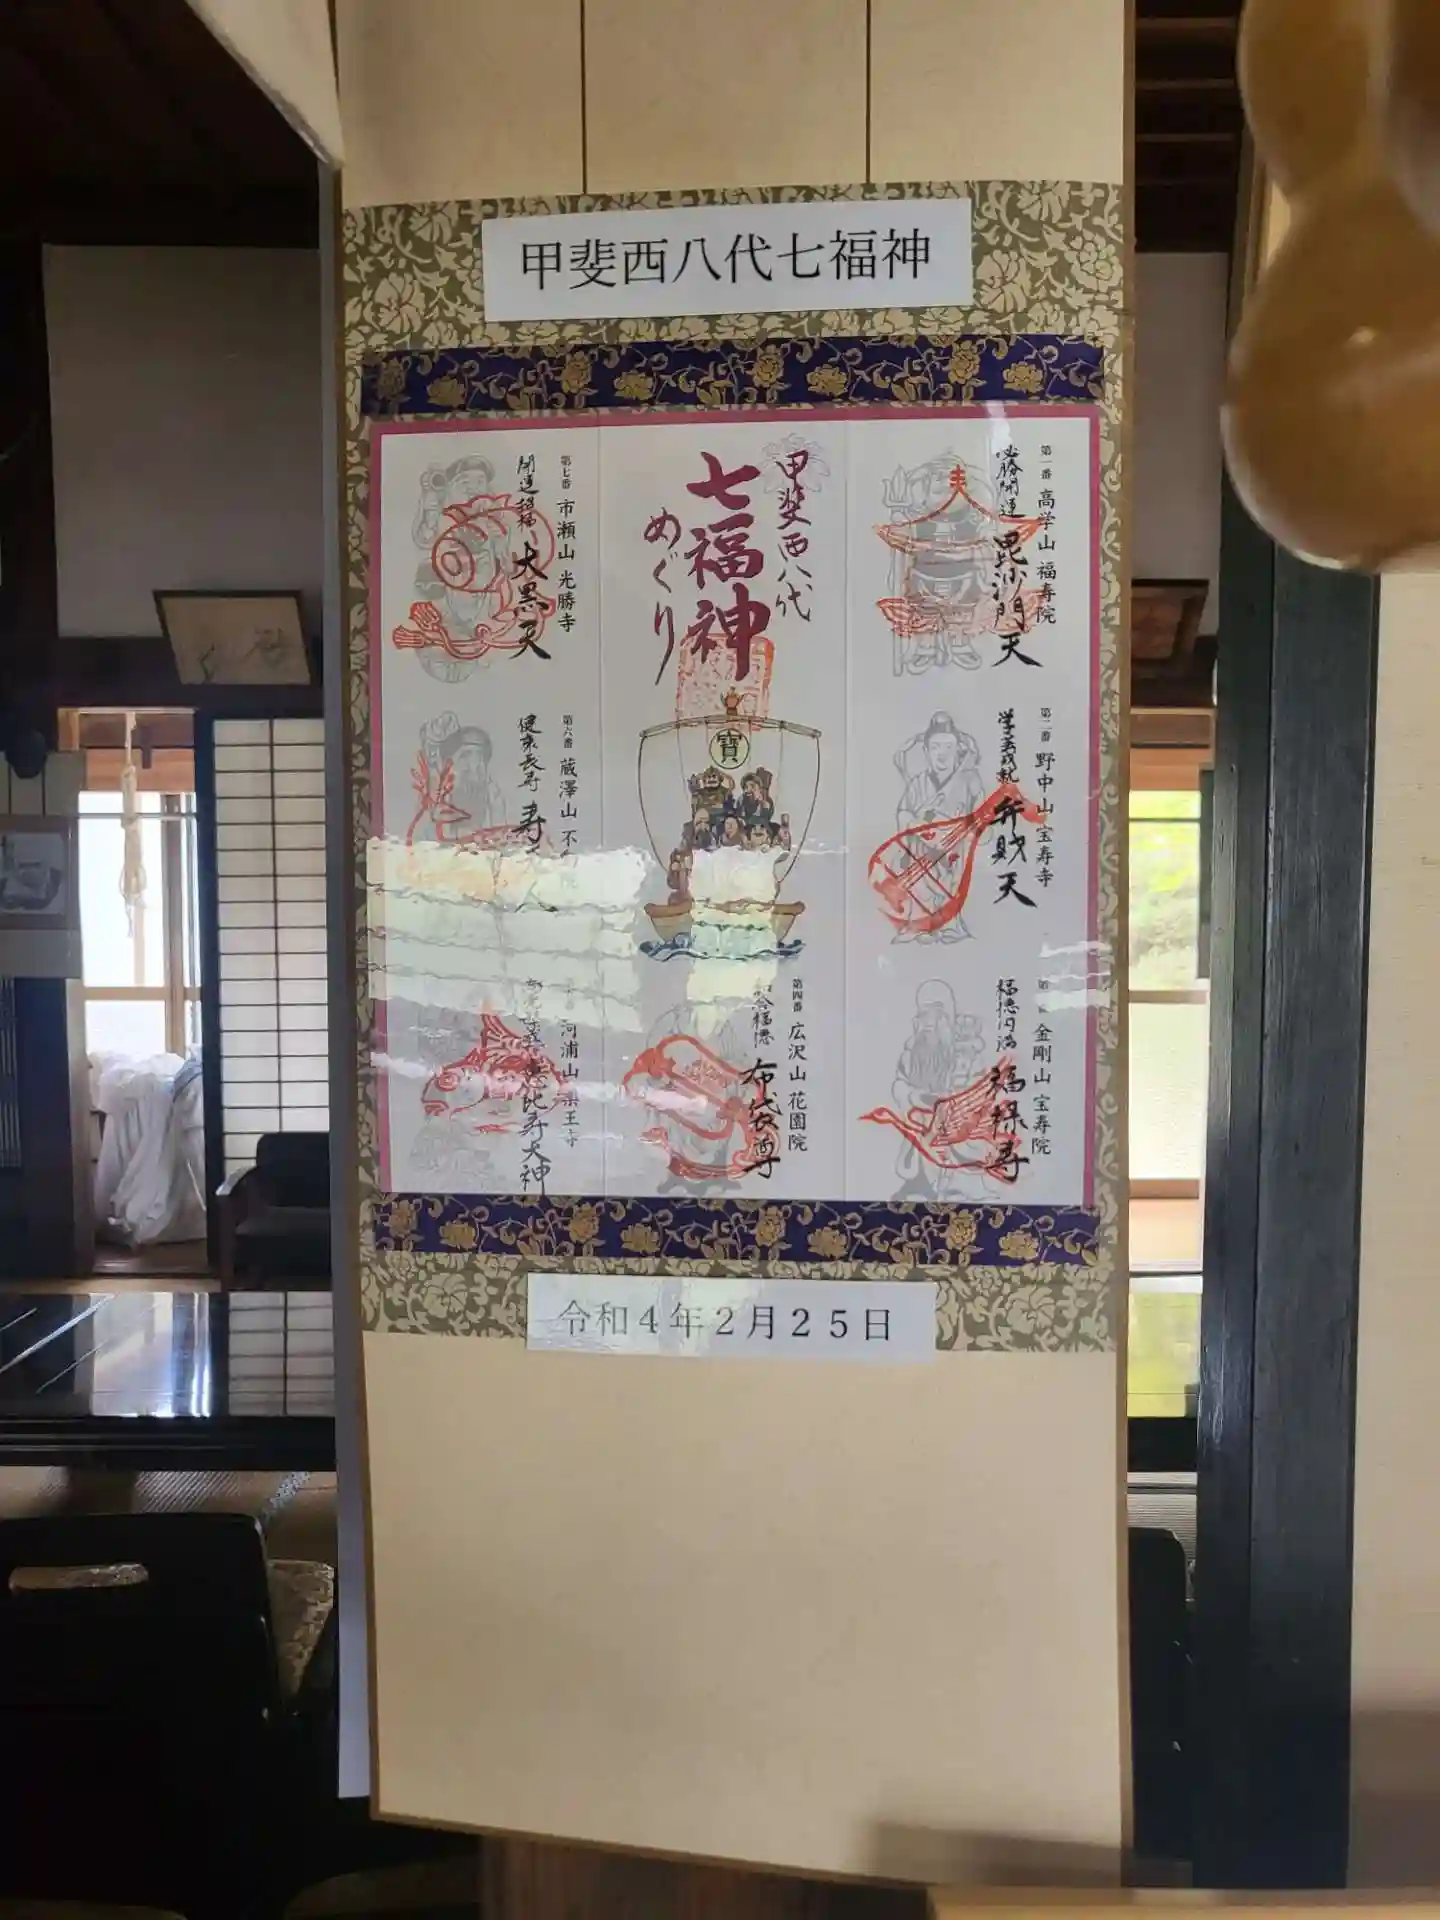 甲斐西八代七福神
第一番 高学山 福寿院
必勝開運 毘沙門天
第二番 野中山 宝寿寺
学芸成就 弁財天
金剛山 宝寿院
福徳円満 福禄寿
甲斐西八代
七福神
めぐり
寳
第四番 広沢山 花園院
福徳 布袋尊
第七番 市瀬山 光勝寺
開運招福 大黒天
第六番 蔵澤山 不
健康長寿 寿 人
河浦山 薬王寺
恵比寿大神
令和4年2月25日